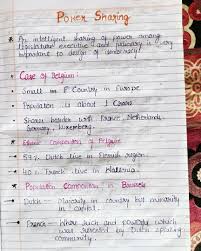 Power Sharing
An intelligent sharing of power among
legislature, executive and judiciary is very
important to design of democracy.
Case of Belgium:
Small Country in Europe
Population is about 1 Crore
Shares border with France, Netherlands,
Germany, Luxemberg.
Ethnic Composition of Belgium
59% Dutch live in Flemish region.
40% French live in Wallonia.
Population Composition in Brussels
Dutch - Majority in country but minority
in capital.
French - were rich and powerful which
was resented by Dutch speaking
community.